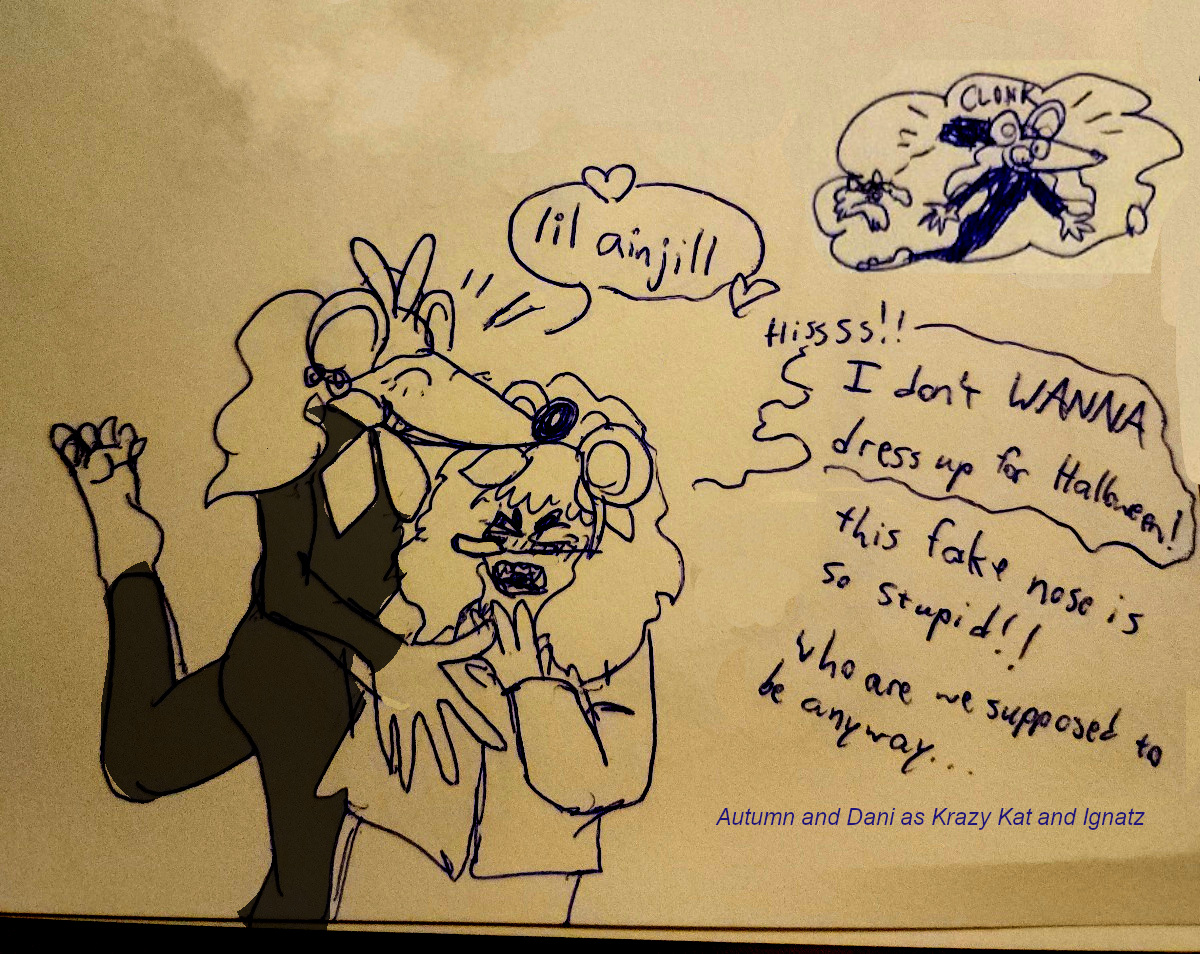 CLONK
lil ainjill
Hissss!!
I don't WANNA
dress up for Halloween!
this fake nose is
so stupid!!
who are we supposed to
be anyway...
Autumn and Dani as Krazy Kat and Ignatz